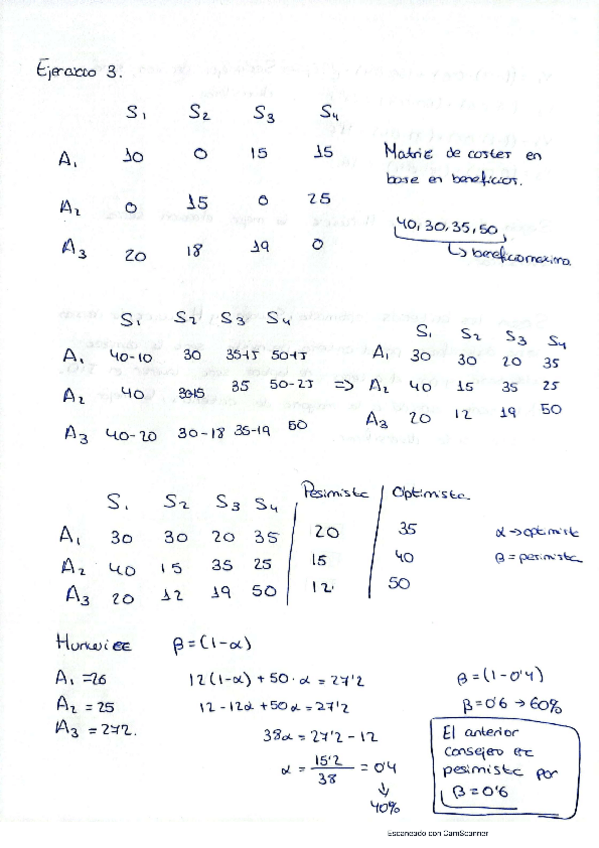 Ejercicio 3.
S1 S2 S3 S4
A1 10 0 15 15
A2 0 15 0 25
A3 20 18 19 0
Matriz de costes en
base en beneficios.
40, 30, 35, 50
↳ beneficio maximo.
S1 S2 S3 S4
A1 40-10 30 35-15 50-15
A2 40 30-15 35 50-25 =>
A3 40-20 30-18 35-19 50
S1 S2 S3 S4
A1 30 30 20 35
A2 40 15 35 25
A3 20 12 19 50
S1 S2 S3 S4 Pesimista Optimista
A1 30 30 20 35 20 35
A2 40 15 35 25 15 40
A3 20 12 19 50 12 50
α → optimist
β = pesimista
Hurwicz β = (1-α)
A1 = 26
A2 = 25
A3 = 27'2.
12(1-α) + 50·α = 27'2
12 - 12α + 50α = 27'2
38α = 27'2 - 12
α = 15'2/38 = 0'4
↓
40%
β = (1-0'4)
β = 0'6 → 60%
El anterior
consejero es
pesimista por
β = 0'6
Escaneado con CamScanner